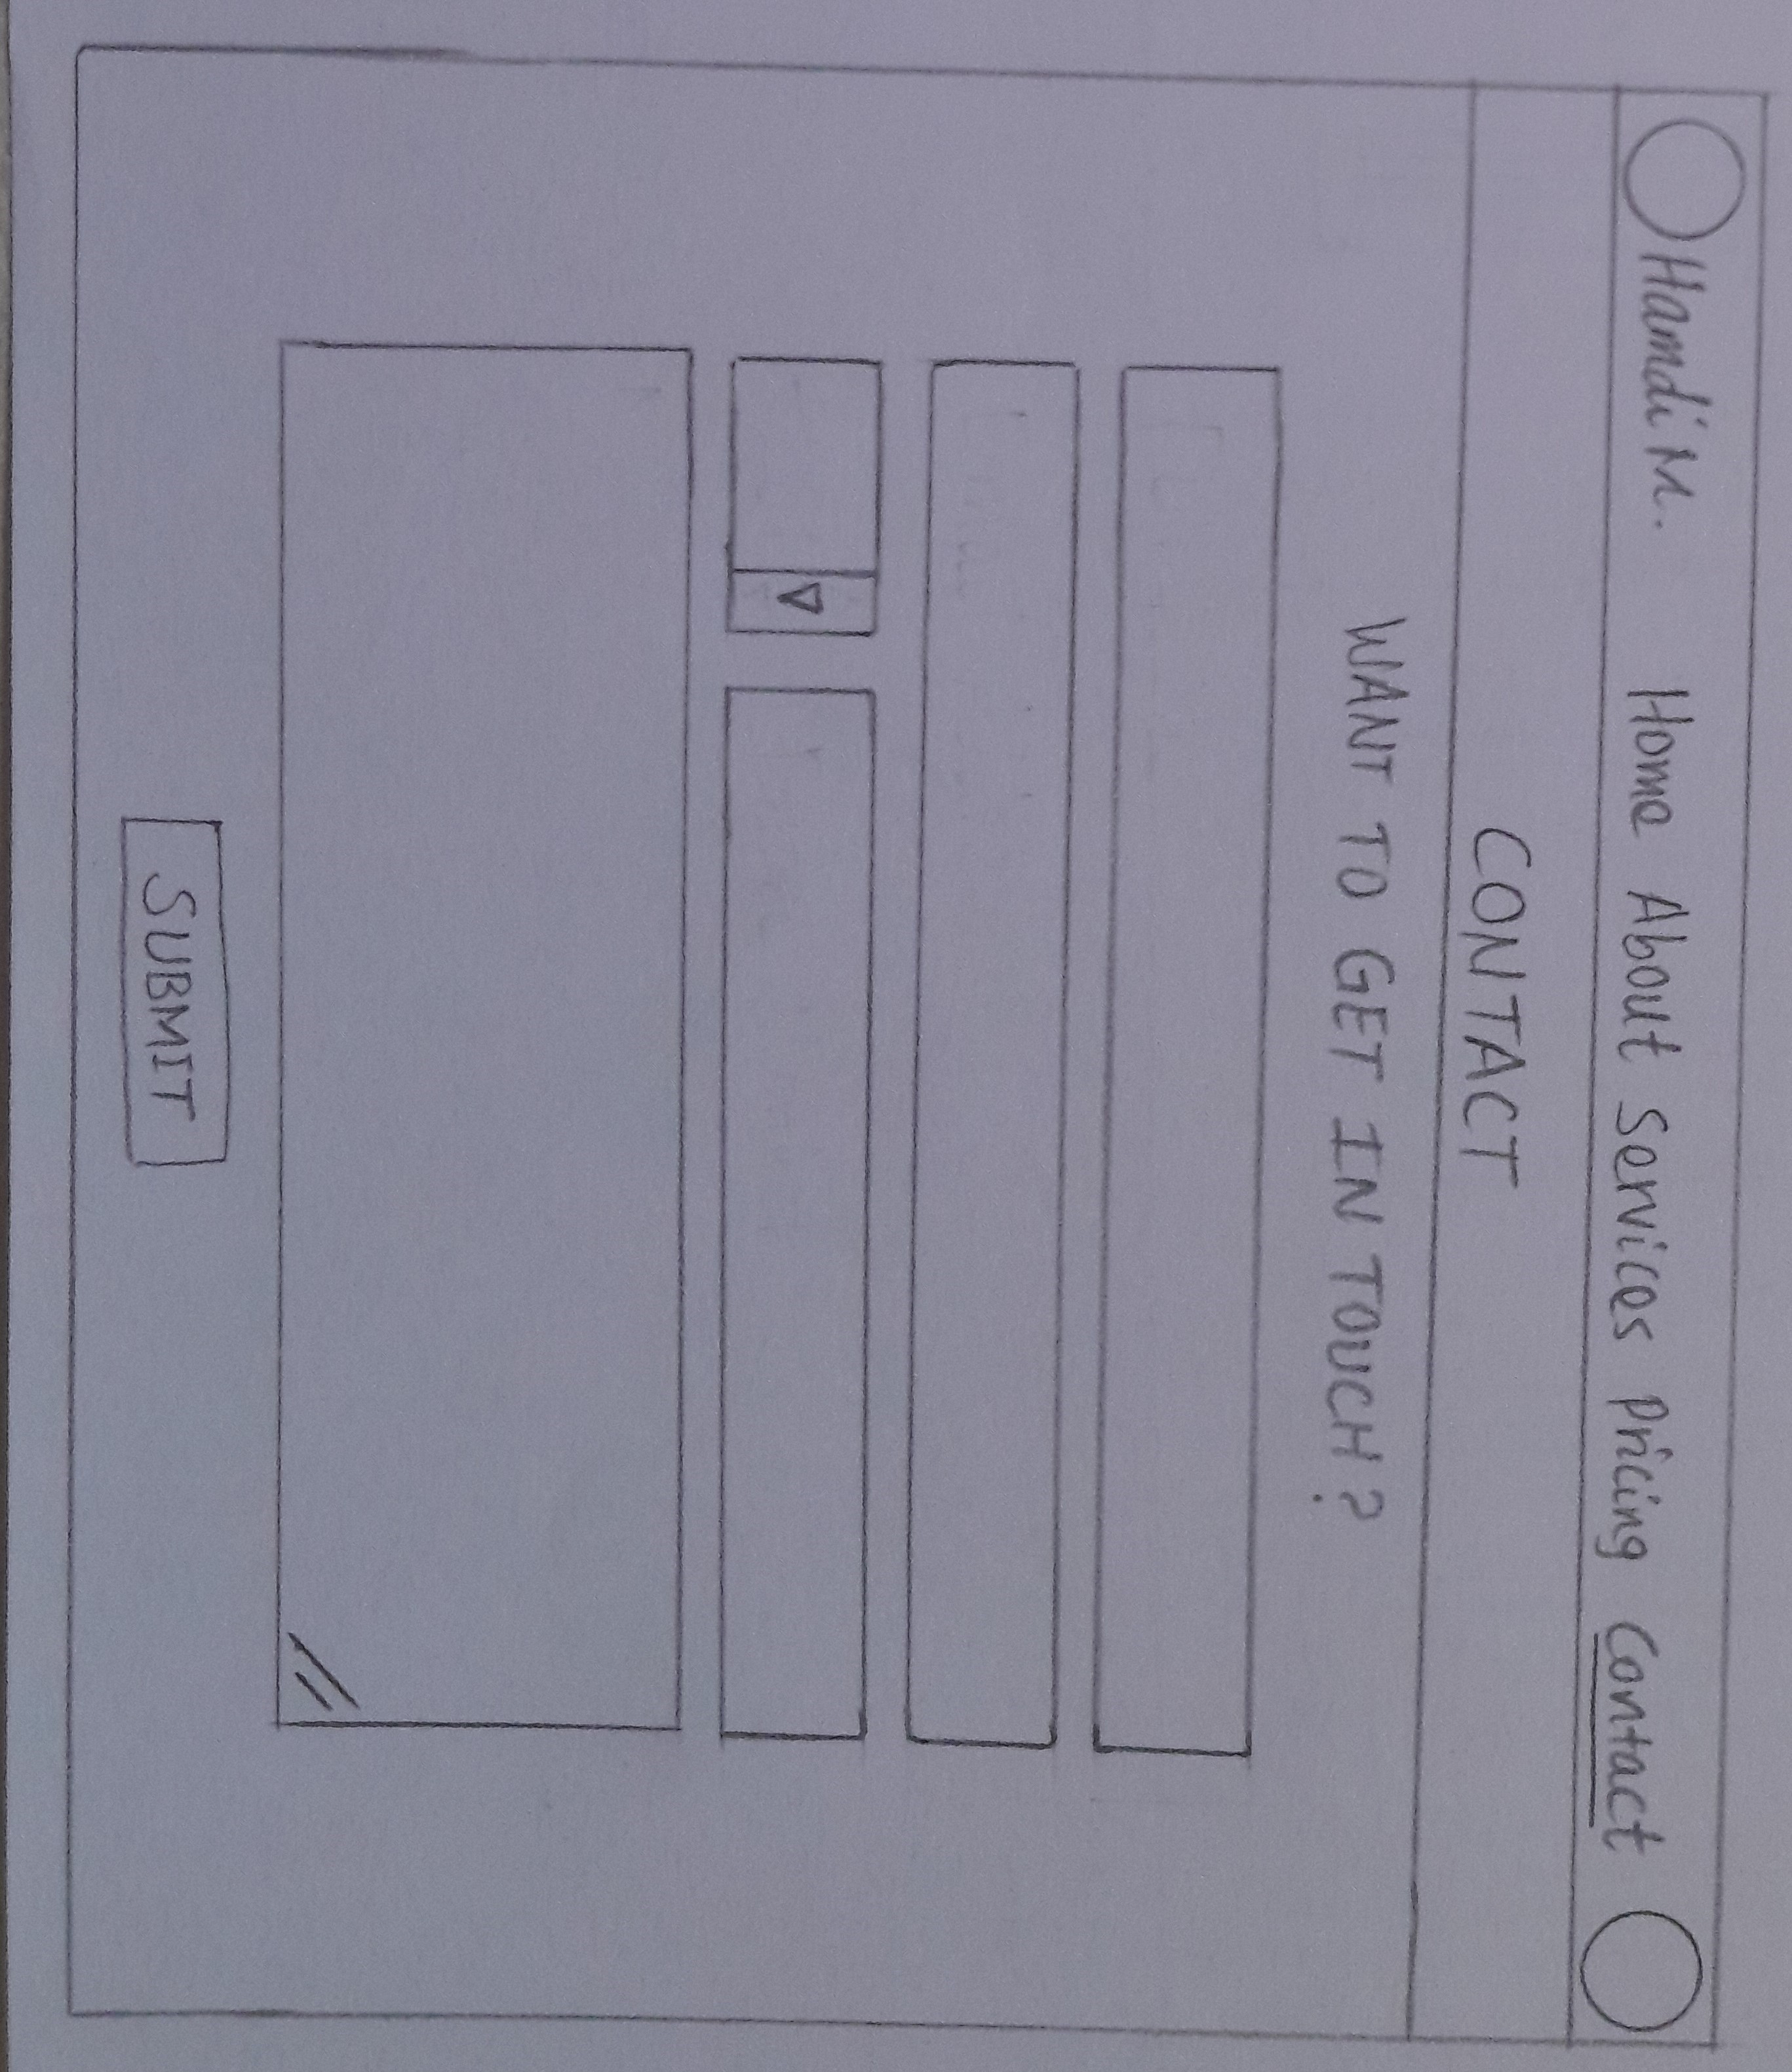 Hamdi M. Home About Services Pricing Contact
CONTACT
WANT TO GET IN TOUCH?
SUBMIT